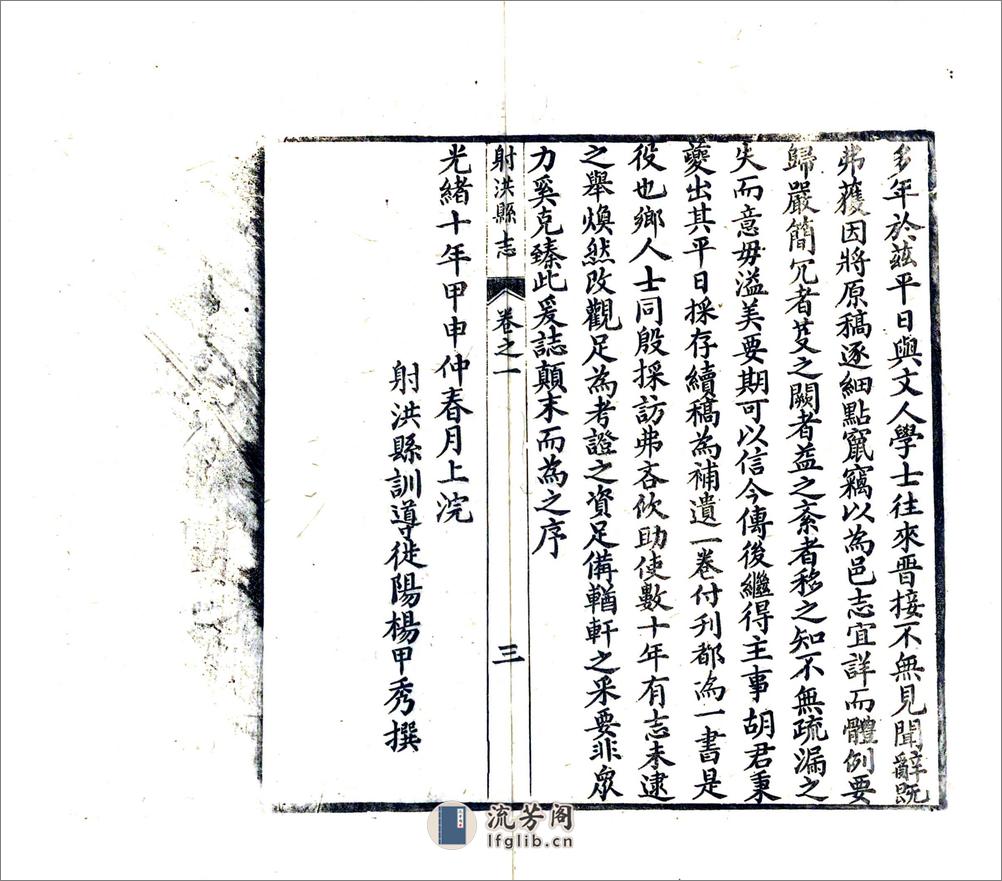 多年於茲平日與文人學士往來晋接不無見聞辭既
弗獲因將原稿逐細點竄竊以為邑志宜詳而體例要
歸嚴簡冗者芟之闕者益之紊者移之知不無疏漏之
失而意毋溢美要期可以信今傳後繼得主事胡君秉
夔出其平日採存續稿為補遺一卷付刊都為一書是
役也鄉人士同殷採訪弗吝佽助使數十年有志未逮
之舉煥然改觀足為考證之資足備輶軒之采要非眾
力奚克臻此爰誌顛末而為之序
射洪縣志
卷之一
三
光緒十年甲申仲春月上浣
射洪縣訓導徙陽楊甲秀撰
流芳阁
lfglib.cn